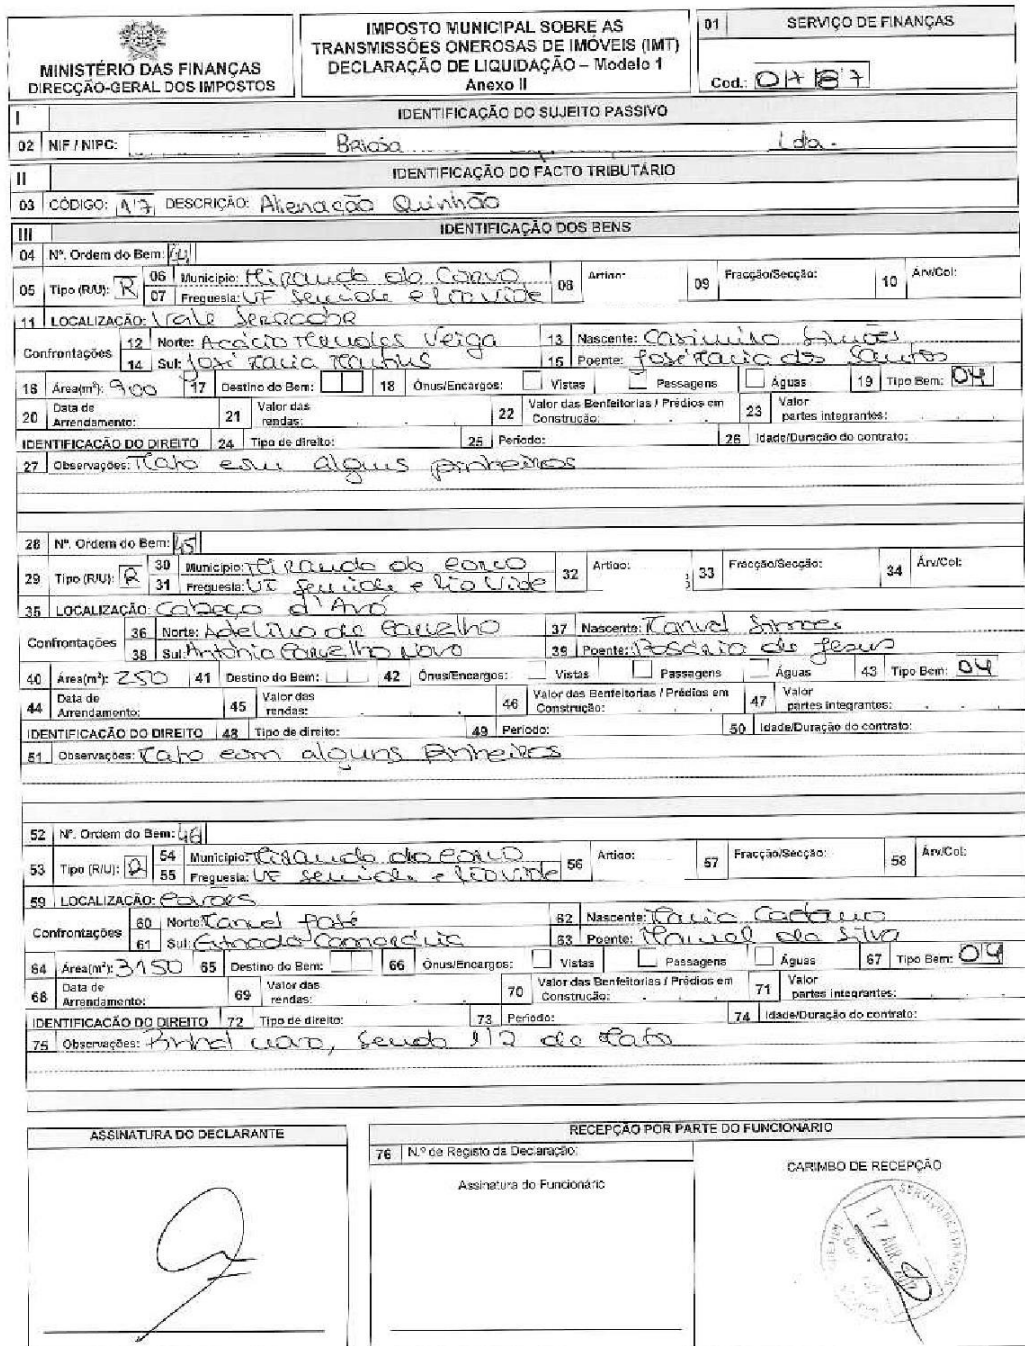 MINISTÉRIO DAS FINANÇAS
DIRECÇÃO-GERAL DOS IMPOSTOS
IMPOSTO MUNICIPAL SOBRE AS
TRANSMISSÕES ONEROSAS DE IMÓVEIS (IMT)
DECLARAÇÃO DE LIQUIDAÇÃO – Modelo 1
Anexo II
01 SERVIÇO DE FINANÇAS
Cod.:
I IDENTIFICAÇÃO DO SUJEITO PASSIVO
02 NIF / NIPC: Briosa Lda.
II IDENTIFICAÇÃO DO FACTO TRIBUTÁRIO
03 CÓDIGO: 17 DESCRIÇÃO: Alienação Quinhão
III IDENTIFICAÇÃO DOS BENS
04 Nº. Ordem do Bem: 44
05 Tipo (R/U): R 06 Município: Miranda do Corvo 08 Artigo: 09 Fracção/Secção: 10 Árv/Col:
07 Freguesia: UF Semide e Rio Vide
11 LOCALIZAÇÃO: Vale Serrador
Confrontações 12 Norte: Acácio Mendes Veiga 13 Nascente: Casimiro Simões
14 Sul: José Maria Martins 15 Poente: José Maria dos Santos
16 Área(m²): 900 17 Destino do Bem: 18 Ónus/Encargos: Vistas Passagens Águas 19 Tipo Bem: 04
20 Data de Arrendamento: 21 Valor das rendas: 22 Valor das Benfeitorias / Prédios em Construção: 23 Valor partes integrantes:
IDENTIFICAÇÃO DO DIREITO 24 Tipo de direito: 25 Período: 26 Idade/Duração do contrato:
27 Observações: Mato com alguns pinheiros
28 Nº. Ordem do Bem: 45
29 Tipo (R/U): R 30 Município: Miranda do Corvo 32 Artigo: 33 Fracção/Secção: 34 Árv/Col:
31 Freguesia: UF Semide e Rio Vide
35 LOCALIZAÇÃO: Cabeço d'Avó
Confrontações 36 Norte: Adelino de Carvalho 37 Nascente: Manuel Simões
38 Sul: António Carvalho Novo 39 Poente: Rosário de Jesus
40 Área(m²): 250 41 Destino do Bem: 42 Ónus/Encargos: Vistas Passagens Águas 43 Tipo Bem: 04
44 Data de Arrendamento: 45 Valor das rendas: 46 Valor das Benfeitorias / Prédios em Construção: 47 Valor partes integrantes:
IDENTIFICAÇÃO DO DIREITO 48 Tipo de direito: 49 Período: 50 Idade/Duração do contrato:
51 Observações: Mato com alguns Pinheiros
52 Nº. Ordem do Bem: 46
53 Tipo (R/U): R 54 Município: Miranda do Corvo 56 Artigo: 57 Fracção/Secção: 58 Árv/Col:
55 Freguesia: UF Semide e Rio Vide
59 LOCALIZAÇÃO:
Confrontações 60 Norte: Manuel José 62 Nascente: Maria Caetano
61 Sul: Estrada Camarária 63 Poente: Manuel da Silva
64 Área(m²): 3150 65 Destino do Bem: 66 Ónus/Encargos: Vistas Passagens Águas 67 Tipo Bem: 04
68 Data de Arrendamento: 69 Valor das rendas: 70 Valor das Benfeitorias / Prédios em Construção: 71 Valor partes integrantes:
IDENTIFICAÇÃO DO DIREITO 72 Tipo de direito: 73 Período: 74 Idade/Duração do contrato:
75 Observações: Pinhal, sendo 1/2 de Mato
ASSINATURA DO DECLARANTE
RECEPÇÃO POR PARTE DO FUNCIONÁRIO
76 N.º de Registo da Declaração:
Assinatura do Funcionário
CARIMBO DE RECEPÇÃO
SERVIÇO DE FINANÇAS
17 ABR.